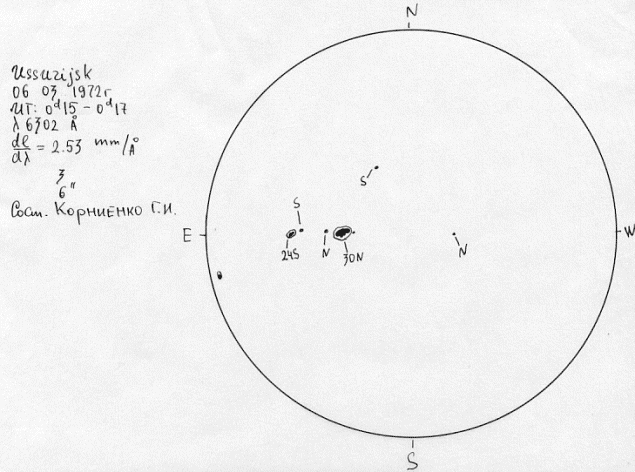 Ussurijsk
06 03 1972г
UT: 0ᵈ15 – 0ᵈ17
λ 6302 Å
dl/dλ = 2.53 mm/Å
3
6"
Сост. Корниенко Г.И.
N
S
S
E
W
24S
N
30N
N
S